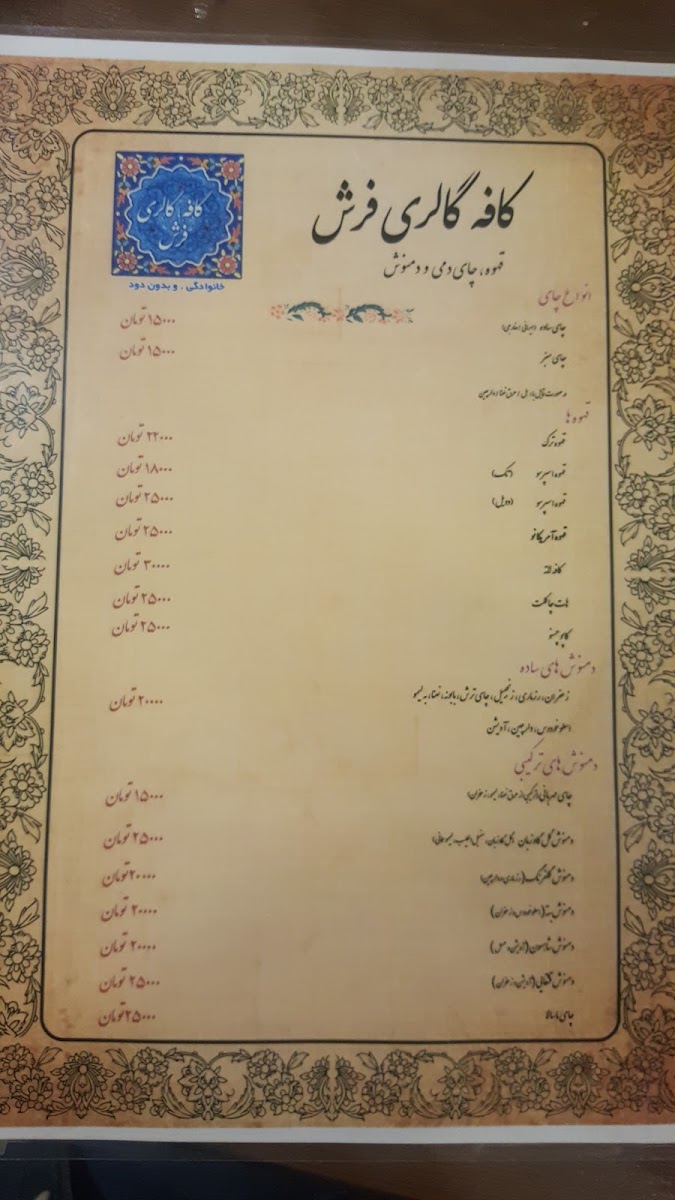 کافه گالری فرش
کافه گالری
فرش
خانوادگی . و بدون دود
قهوه، چای دمی و دمنوش
انواع چای
چای ساده ۱۵۰۰۰ تومان
چای سبز ۱۵۰۰۰ تومان
قهوه ها
قهوه ترک ۲۲۰۰۰ تومان
قهوه اسپرسو (تک) ۱۸۰۰۰ تومان
قهوه اسپرسو (دوبل) ۲۵۰۰۰ تومان
قهوه آمریکانو ۲۵۰۰۰ تومان
کافه لاته ۳۰۰۰۰ تومان
هات چاکلت ۲۵۰۰۰ تومان
کاپوچینو ۲۵۰۰۰ تومان
دمنوش های ساده
زعفران، رزماری، زنجبیل، چای ترش، بابونه، نعنا، به لیمو ۲۰۰۰۰ تومان
اسطوخودوس، دارچین، آویشن
دمنوش های ترکیبی
چای مهربانی ۱۵۰۰۰ تومان
دمنوش گل گاوزبان (گل گاوزبان، سنبل الطیب، لیمو عمانی) ۲۵۰۰۰ تومان
دمنوش گلفرنگ (رزماری و دارچین) ۲۰۰۰۰ تومان
دمنوش (اسطوخودوس و زعفران) ۲۰۰۰۰ تومان
دمنوش (آویشن و عسل) ۲۰۰۰۰ تومان
دمنوش قشقایی (آویشن و زعفران) ۲۵۰۰۰ تومان
چای ماسالا ۲۵۰۰۰ تومان